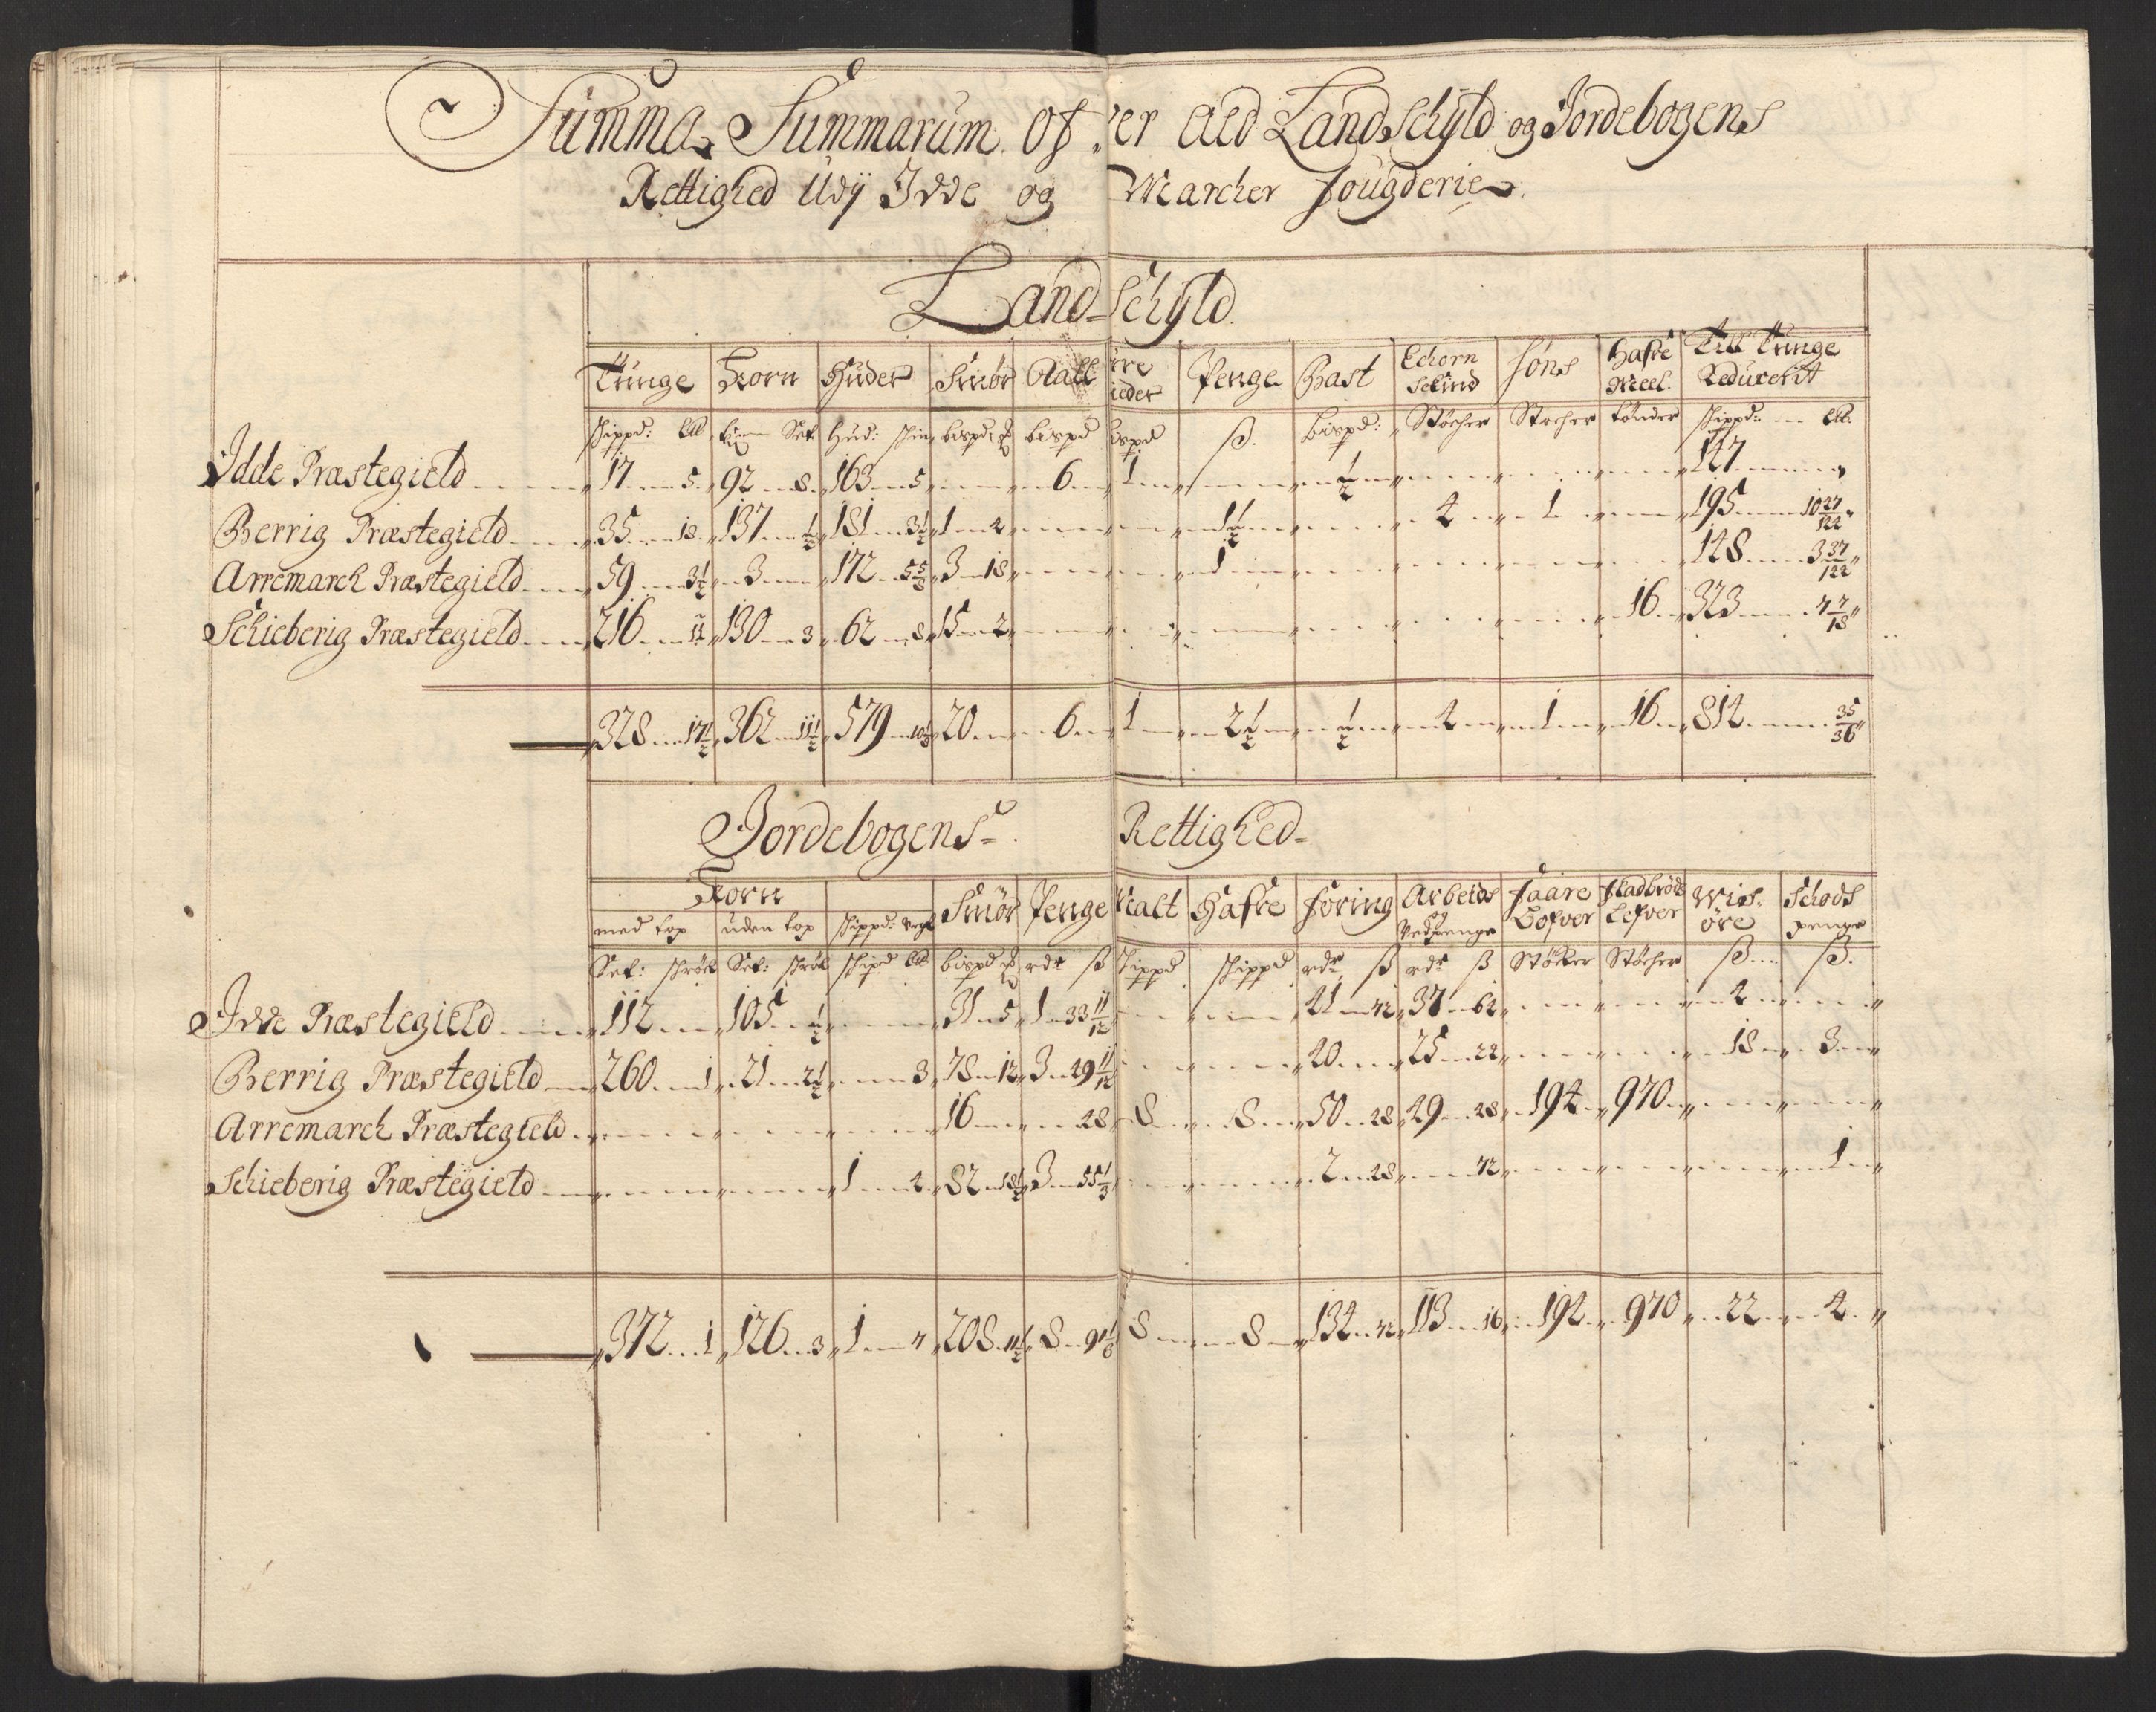 Summa Summarum Of ver Ald Landschÿld og Jordebogens
Rettighed Udÿ Idde og Marcher Fougderie.
Land-Schÿld.
Tunge Korn Huder Smör Aall Tørre Penge Bast Echorn Schind Høns Hafre Meel. Till Tunge Reducerit
Schippd: Hud: bispd: bispd bispd ß. bispd: Støcher Støcher tønder Schippd:
Idde Præstegield 17 5 92 8 163 5 6 1 ½ 147
Berrig Præstegield 35 18 137 ½ 181 3½ 1 4 1½ 4 1 195 10 27/122
Arremarch Præstegield 59 3½ 3 172 5 5/8 3 18 1 148 3 37/122
Schieberig Præstegield 216 11 130 3 62 8 15 2 16 323 7 7/18
328 17½ 362 11½ 579 20 6 1 2½ ½ 4 1 16 812 35/36
Jordebogens Rettighed
Korn Smör Penge Malt Hafre Foring Arbeids og Vedpenge Faare Bofver Fladbrøds Lefver Wis-øre Schods penge
med top uden top Schippd: Vegt
Set: Set: bispd rdr ß Schippd Schippd rdr ß rdr ß Støcker Støcher ß. ß.
Idde Præstegield 112 105 ½ 31 5 1 33 11/12 21 72 37 62 4
Berrig Præstegield 260 1 21 2½ 3 78 12 3 29 11/12 20 25 22 18 3
Arremarch Præstegield 16 28 8 8 50 28 49 28 194 970
Schieberig Præstegield 1 4 82 18½ 3 55⅓ 2 28 72 1
372 1 126 3 1 7 208 11½ 8 8 8 134 72 113 16 194 970 22 4